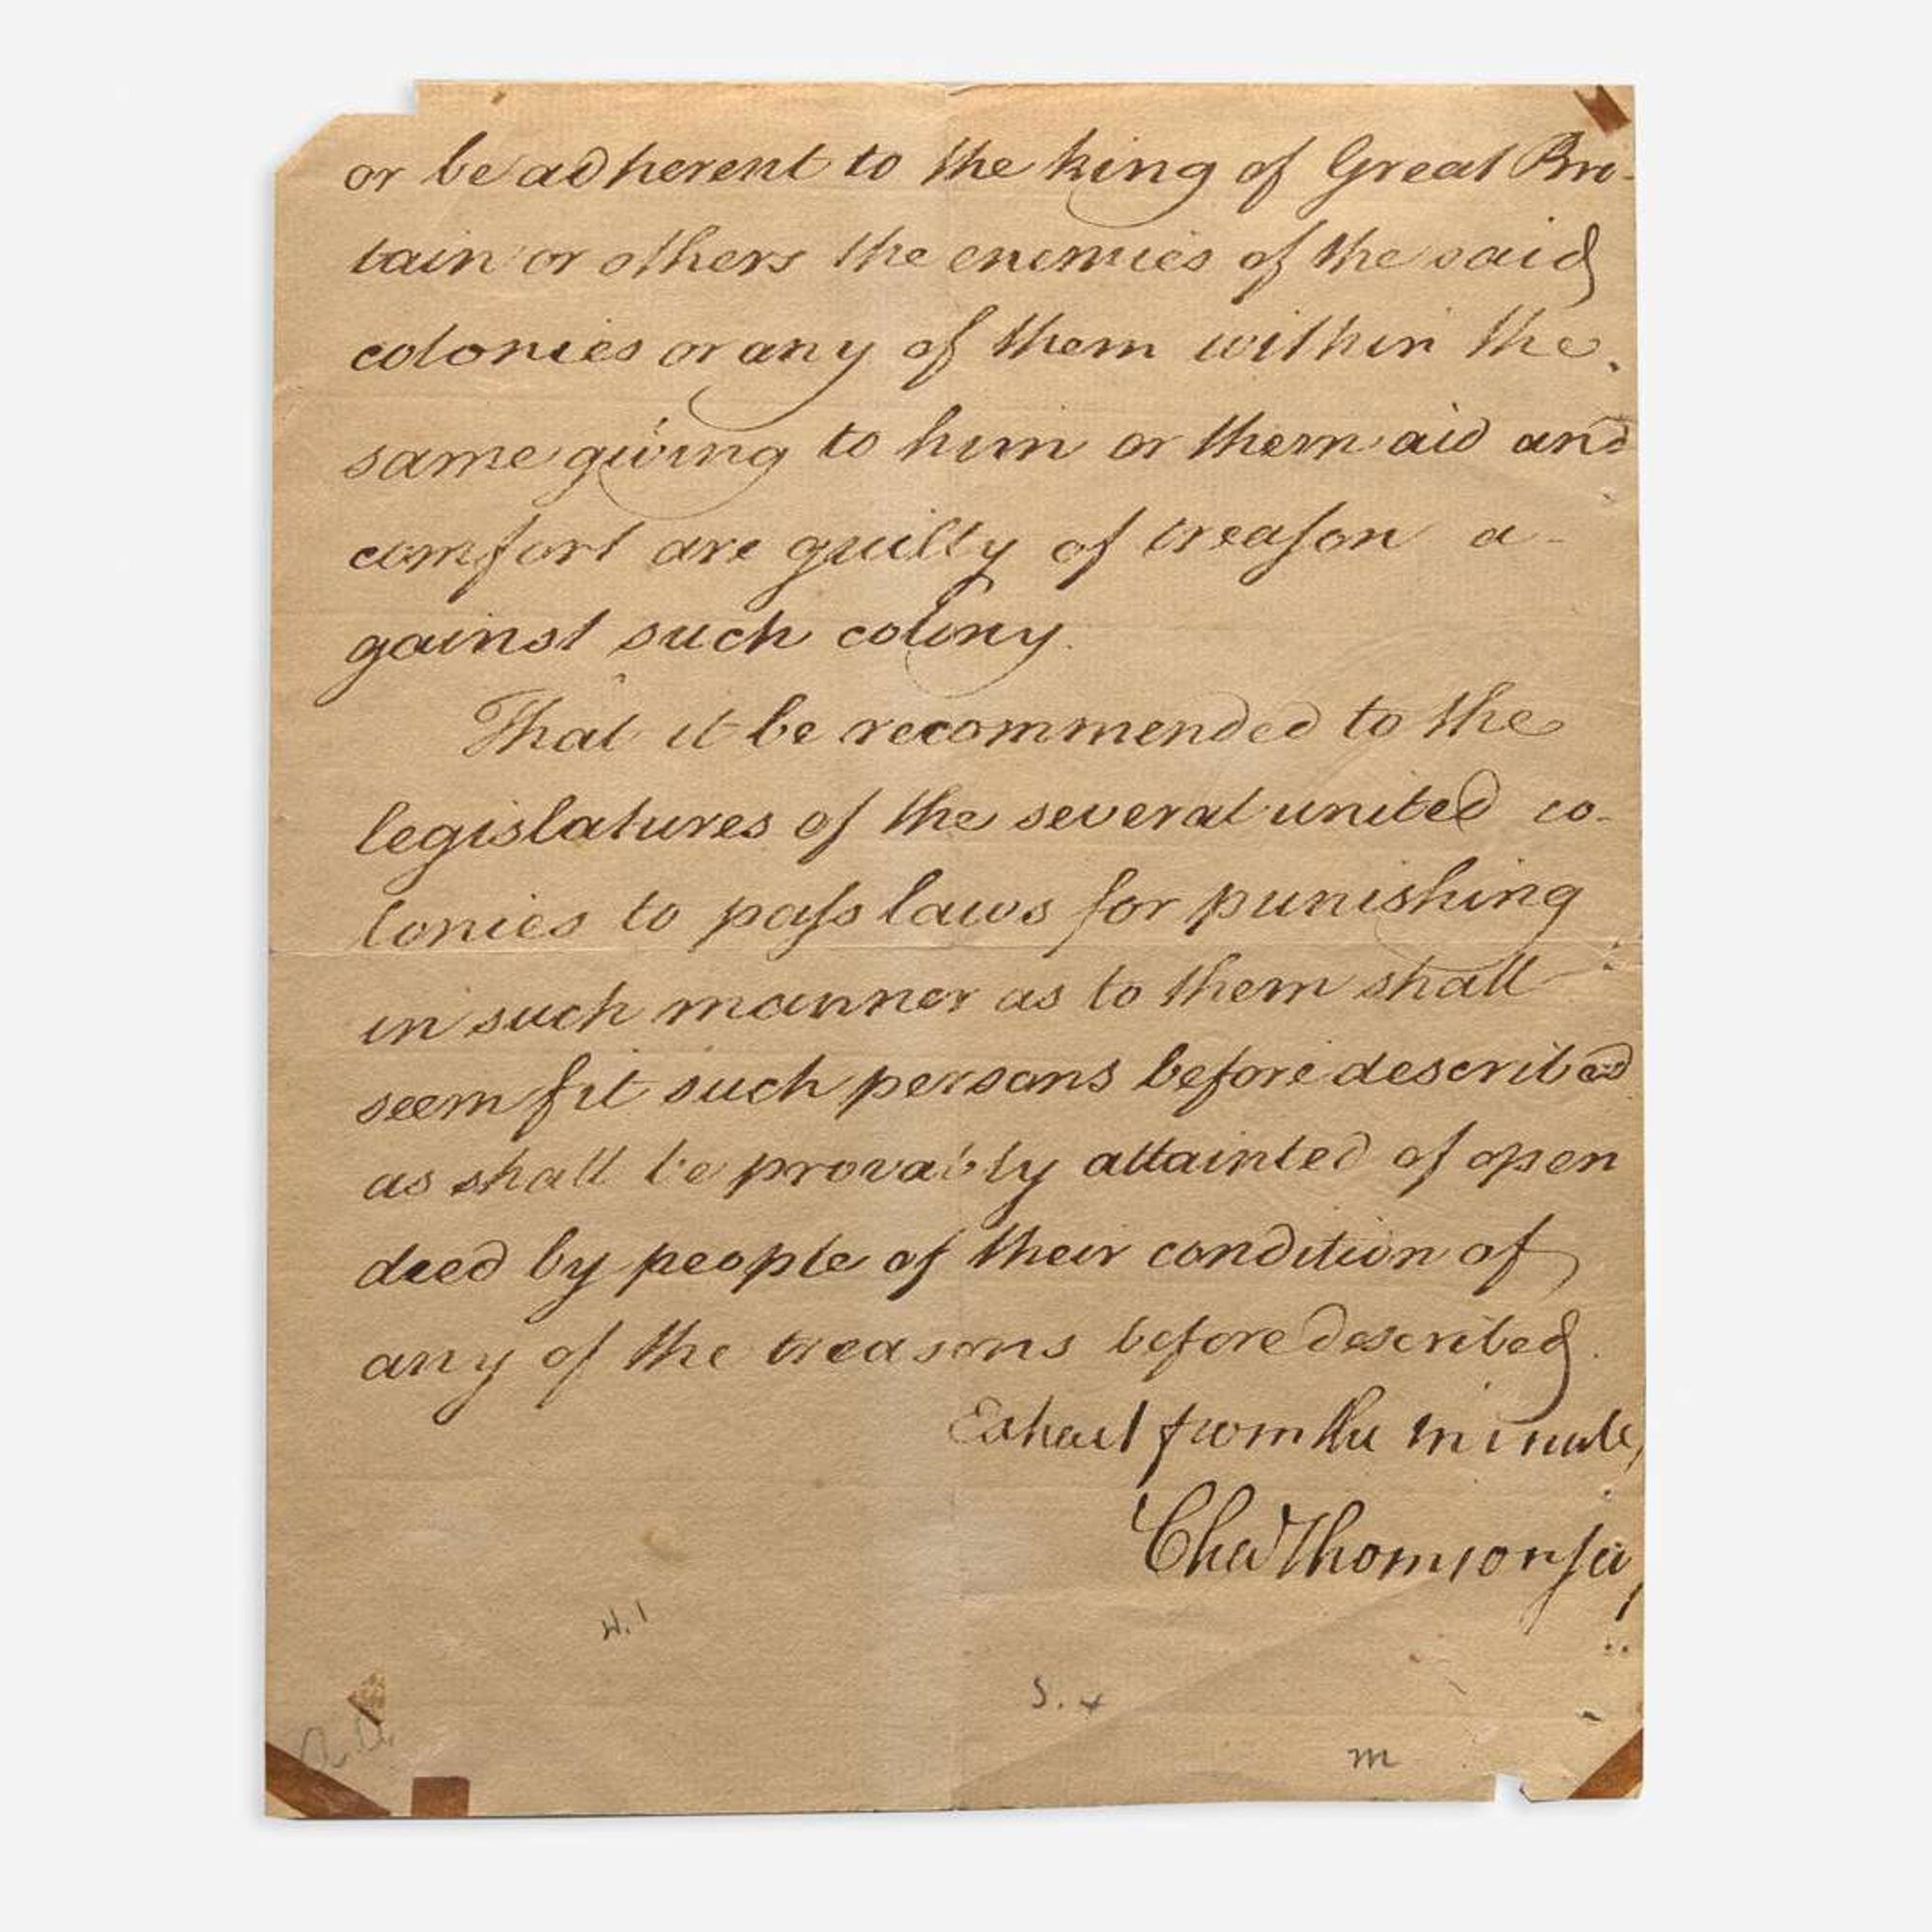 or be adherent to the king of Great Bri-
tain or others the enemies of the said
colonies or any of them within the
same giving to him or them aid and
comfort are guilty of treaſon a-
gainst such colony.
That it be recommended to the
legislatures of the several united co-
lonies to paſs laws for punishing
in such manner as to them shall
seem fit such persons before described
as shall be provably attainted of open
deed by people of their condition of
any of the treasons before described.
Extract from the minutes
Cha Thomson secy
H. 1
S. x
m
a.a.